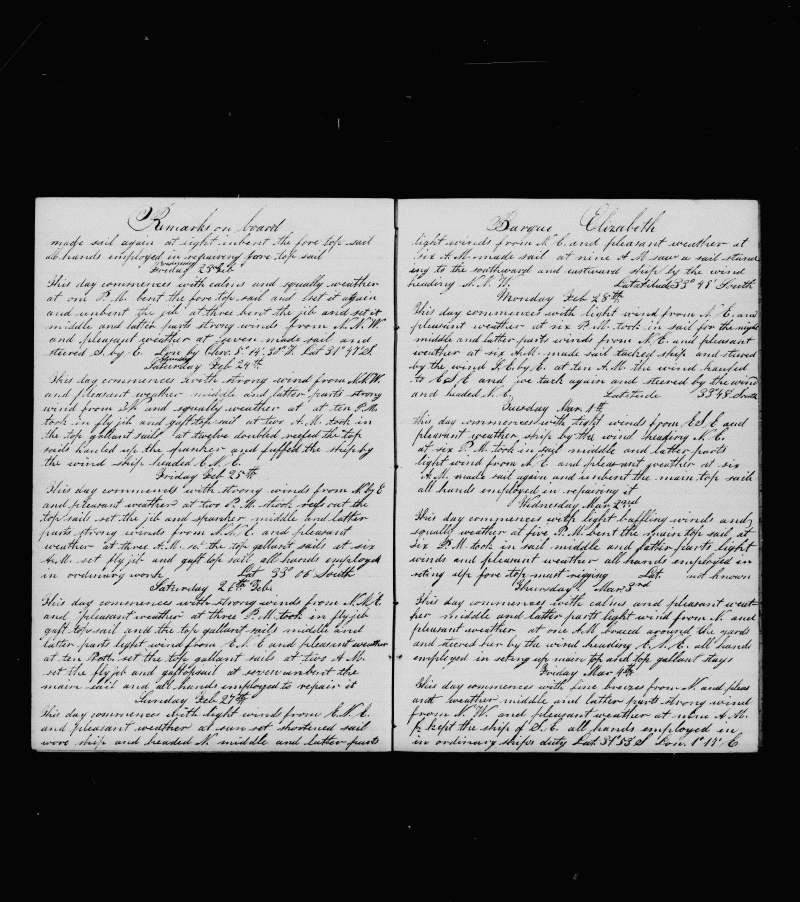 Remarks on board
made sail again at eight unbent the fore top sail
all hands employed in repairing fore top sail
Wednesday
Friday 23rd Feb
This day commences with calms and squally weather
at one P.M. bent the fore top sail and set it again
and unbent the jib at three bent the jib and set it
middle and latter parts strong winds from N.N.W.
and pleasant weather at seven made sail and
steered S. by E. Lon by Chro. 5° 14' 30" W. Lat 31° 47 S.
Thursday
Saturday Feb 24th
This day commences with strong wind from N.N.W.
and pleasant weather middle and latter parts strong
wind from and squally weather at at ten P.M.
took in fly jib and gaft top sail at two A.M. took in
the top gallant sails at twelve doubled reefed the top
sails hauled up the spanker and luffed the ship by
the wind ship headed E.N.E.
Friday Feb 25th
This day commends with strong winds from N. by E
and pleasant weather at two P.M. shook reefs out the
top sail set the jib and spanker middle and latter
parts strong winds from N.N.E. and pleasant
weather at three A.M. set the top gallant sails at six
A.M. set fly jib and gaff top sail all hands employed
in ordinary work Lat 33° 06 South
Saturday 26th Feb.
This day commences with strong winds from N.N.E.
and pleasant weather at three P.M. took in fly jib
gaft topsail and the top gallant sails middle and
latter parts light wind from E.N.E and pleasant weather
at ten set the top gallant sails at two A.M.
set the fly jib and gaftopsail at seven unbent the
main sail and all hands employed to repair it
Sunday Feb 27th
This day commences with light winds from E.N.E.
and pleasant weather at sun set shortened sail
wore ship and headed N. middle and latter parts
Barque Elizabeth
light winds from N.E. and pleasant weather at
six A.M. made sail at nine A.M. saw a sail stand
ing to the southward and eastward ship by the wind
heading N.N.W. Latitude 33° 48' South
Monday Feb 28th
This day commences with light wind from N.E. and
pleasant weather at six P.M. took in sail for the night
middle and latter parts winds from N.E. and pleasant
weather at six A.M. made sail tacked ship and steered
by the wind S.E. by E. at ten A.M. the wind hauled
to E.S.E and we tack again and steered by the wind
and headed N.E. Latitude 33° 48 South
Tuesday Mar. 1st
this day commences with light winds from E.S.E. and
pleasant weather, ship by the wind heading N.E.
at six P.M. took in sail middle and latter parts
light wind from N.E. and pleasant weather at six
A.M. made sail again and unbent the main top sail
all hands employed in repairing it
Wednesday Mar. 2nd
This day commences with light baffling winds and
squally weather at five P.M. bent the main top sail at
six P.M. took in sail middle and latter parts light
winds and pleasant weather all hands employed in
seting up fore top mast rigging Lat. not known
Thursday Mar 3rd
This day commences with calms and pleasant weat-
her middle and latter parts light wind from N. and
pleasant weather at one A.M. braced around the yards
and steered her by the wind heading E.N.E. all hands
employed in seting up main top and top gallant stays
Friday Mar 4th
This day commences with fine breezes from N. and pleas
ant weather middle and latter parts strong wind
from N.W. and pleasant weather at nine A.M.
kept the ship of S.E. all hands employed in
in ordinary ships duty Lat. 31° 53' S Lon. 1° 17' E